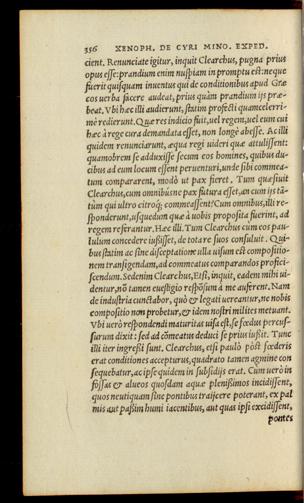 356 XENOPH. DE CYRI MINO. EXPED.
cient. Renunciate igitur, inquit Clearchus, pugna prius
opus esse: prandium enim nuspiam in promptu est: neque
fuerit quisquam inuentus qui de conditionibus apud Græ
cos uerba facere audeat, prius quàm prandium ijs præ-
beat. Vbi hæc illi audierunt, statim profecti quamcelerri-
mè redierunt. Quæ res indicio fuit, uel regem, uel eum cui
hæc à rege cura demandata esset, non longè abesse. Ac illi
quidem renunciarunt, æqua regi uideri quæ attulissent:
quamobrem se adduxisse secum eos homines, quibus du-
cibus ad eum locum essent peruenturi, unde sibi commea-
tum compararent, modò ut pax fieret. Tum quæsiuit
Clearchus, cum omnibus ne pax futura esset, an cum ijs tā-
tùm qui ultro citroq; commeassent? Cum omnibus, illi re-
sponderunt, usquedum quæ à uobis proposita fuerint, ad
regem referantur. Hæc illi. Tum Clearchus cum eos pau-
lulum concedere iussisset, de tota re suos consuluit. Qui-
bus statim ac sine disceptatione ulla uisum est compositio-
nem transigendam, ad commeatus comparandos profici-
scendum. Sed enim Clearchus, Etsi, inquit, eadem mihi ui-
dentur, nō tamen è uestigio respōsum à me auferent. Nam
de industria cunctabor, quò & legati uereantur, ne nobis
compositio non probetur, & idem nostri milites metuant.
Vbi uerò respondendi maturitas uisa est, se fœdus percus-
surum dixit: sed ad cōmeatus deduci se prius iussit. Tunc
illi iter ingressi sunt. Clearchus, etsi paulò pòst fœderis
erat conditiones accepturus, quadrato tamen agmine con
sequebatur, ac ipse quidem in subsidijs erat. Cum uerò in
fossas & alueos quosdam aquæ plenissimos incidissent,
quos neutiquam sine pontibus traijcere poterant, ex pal
mis aut passim humi iacentibus, aut quas ipsi excidissent,
pontes